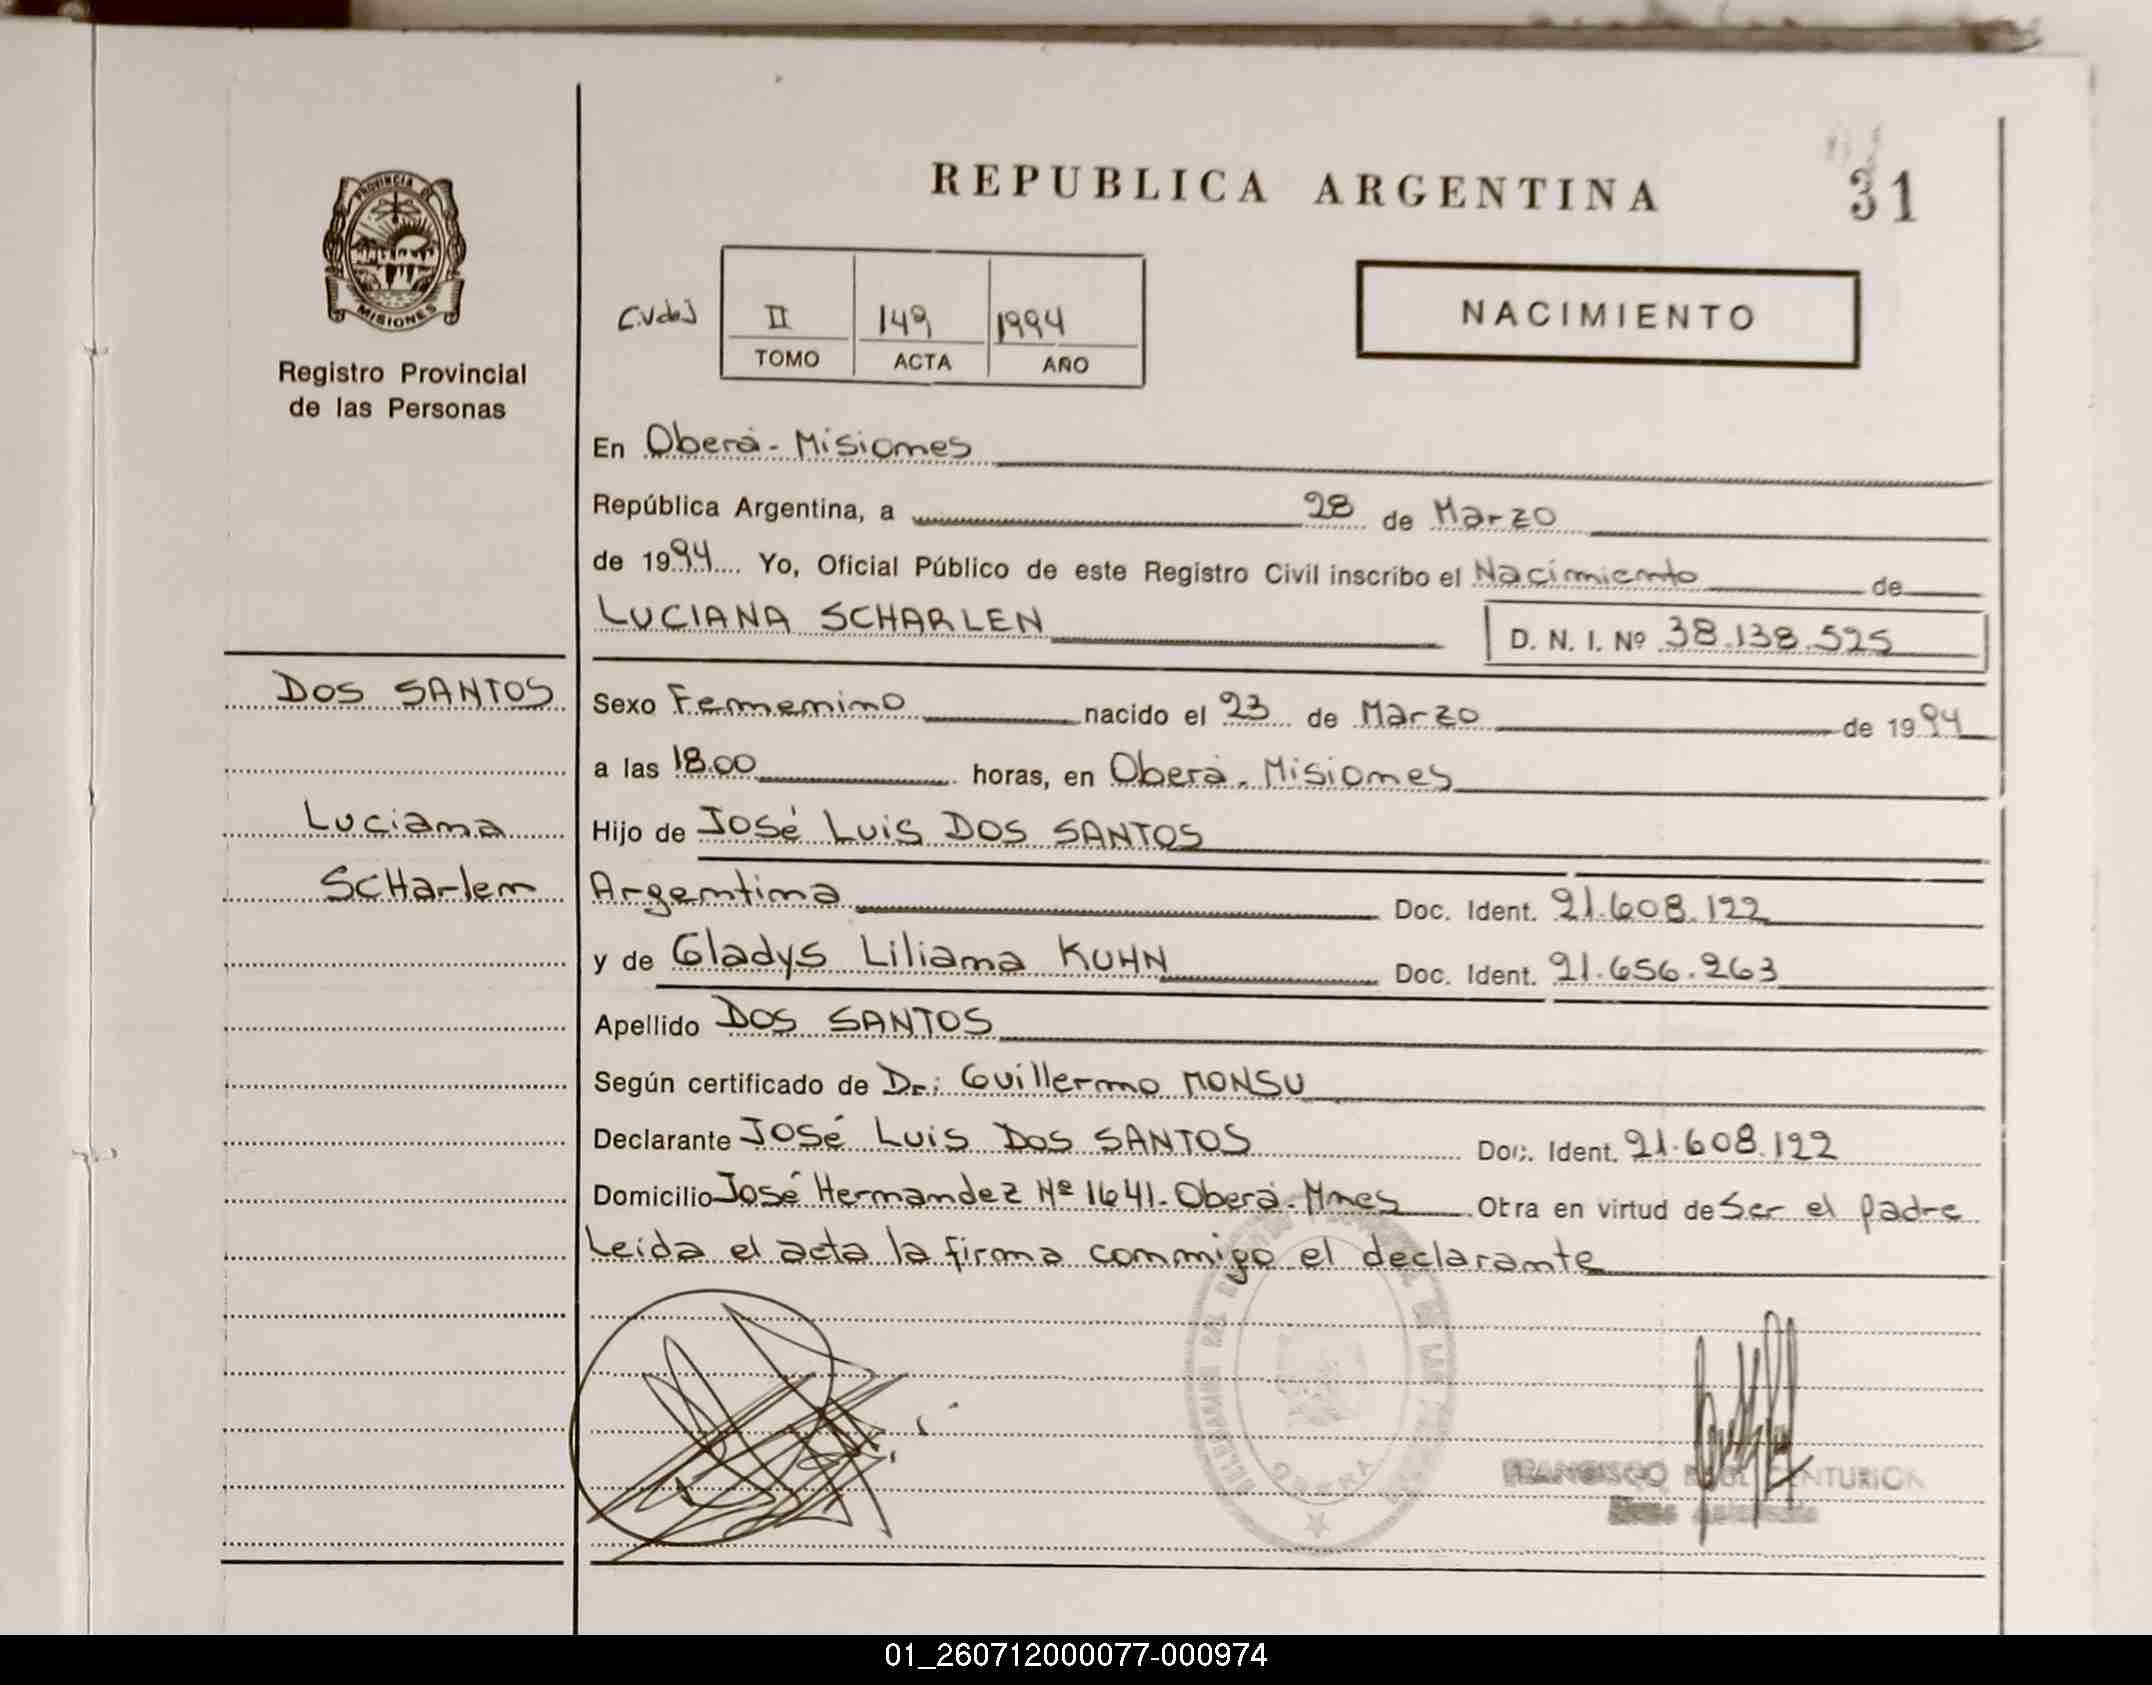 REPUBLICA ARGENTINA
31
PROVINCIA DE
MISIONES
Registro Provincial
de las Personas
II 149 1994
TOMO ACTA AÑO
NACIMIENTO
En Oberá - Misiones
República Argentina, a 28 de Marzo
de 1994 Yo, Oficial Público de este Registro Civil inscribo el Nacimiento de
LUCIANA SCHARLEN
D. N. I. Nº 38.138.525
DOS SANTOS
Luciana
SCHarlen
Sexo Femenino nacido el 23 de Marzo de 1994
a las 18.00 horas, en Oberá - Misiones
Hijo de José Luis DOS SANTOS
Argentina Doc. Ident. 21.608.122
y de Gladys Liliana KUHN Doc. Ident. 21.656.263
Apellido DOS SANTOS
Según certificado de Dr: Guillermo MONSU
Declarante José Luis Dos SANTOS Doc. Ident. 21.608.122
Domicilio José Hernandez Nº 1641 - Oberá - Mnes Otra en virtud de Ser el padre
Leida el acta la firma conmigo el declarante
OBERA
FRANCISCO RAUL CENTURION
01_260712000077-000974